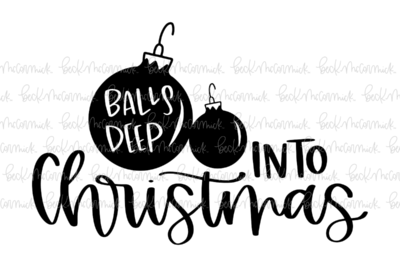 BALLS
DEEP
INTO
Christmas